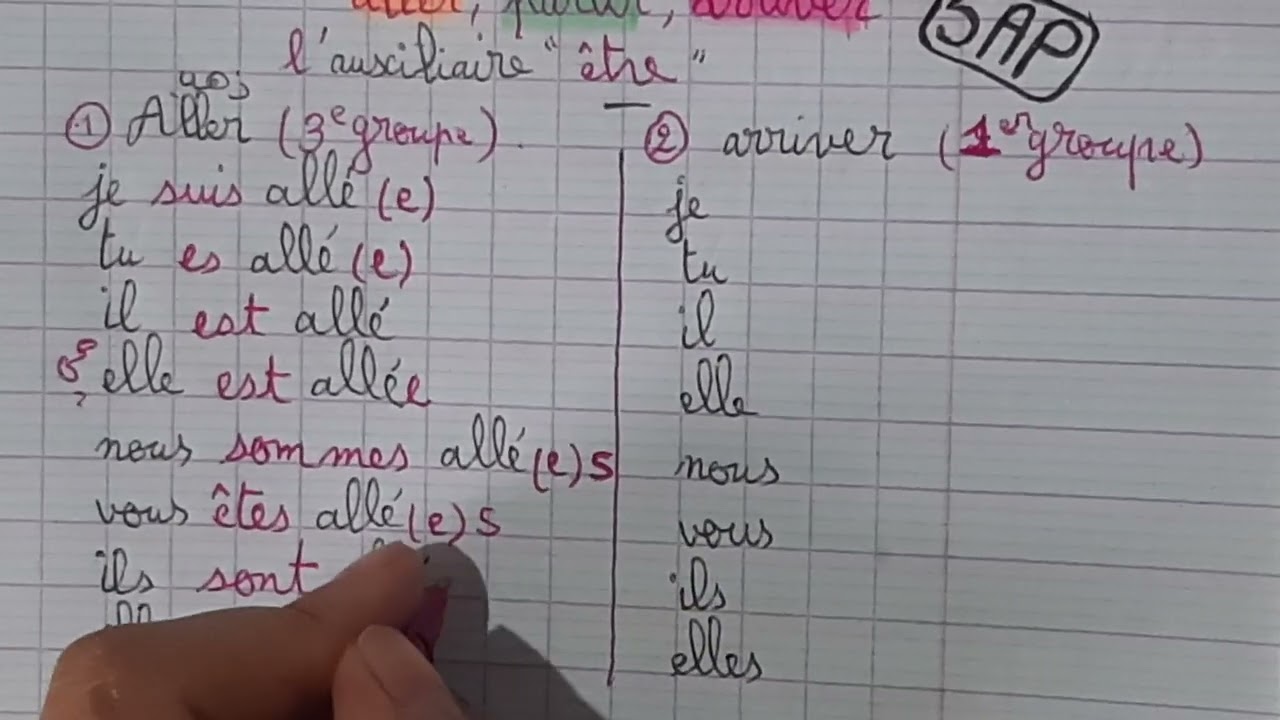 aller,
SAP
l'auxiliaire "être"
① Aller (3e groupe).
je suis allé(e)
tu es allé(e)
il est allé
elle est allée
nous sommes allé(e)s
vous êtes allé(e)s
ils sont
② arriver (1er groupe)
je
tu
il
elle
nous
vous
ils
elles